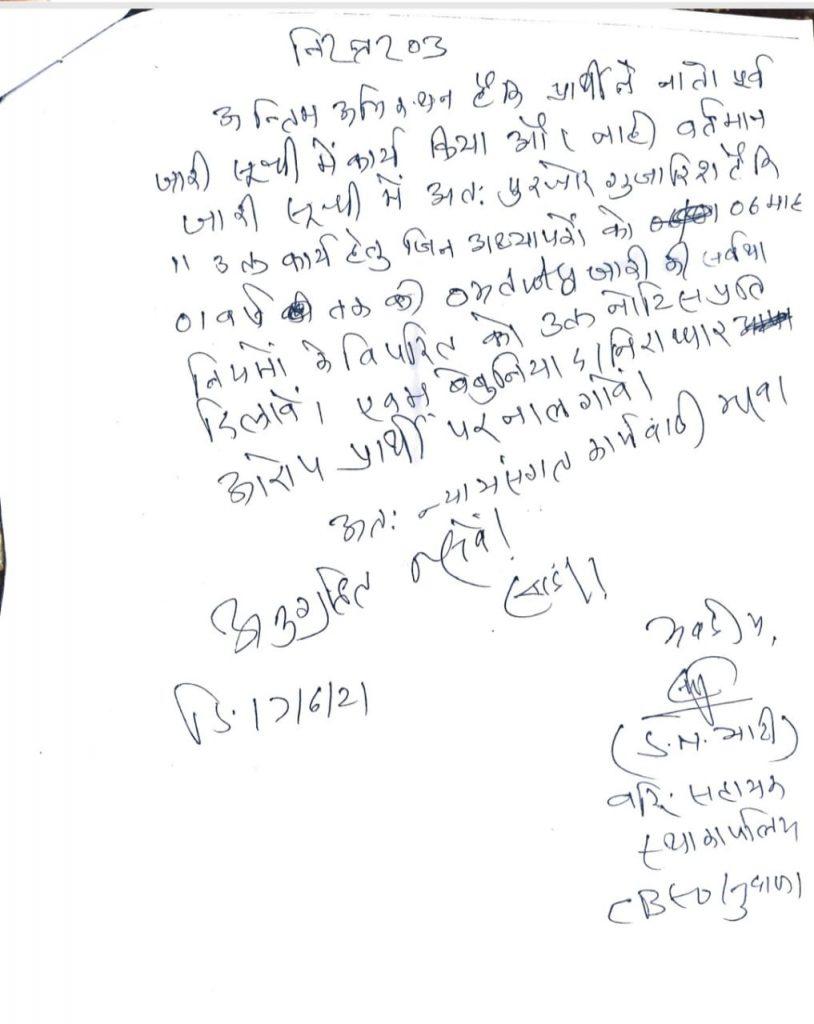 निरन्तर 03
अन्तिम अभिकथन है कि प्रार्थी ने नातो पूर्व
जारी सूची में कार्य किया और नाही वर्तमान
जारी सूची में अतः पुरजोर गुजारिश है कि
" उक्त कार्य हेतु जिन अध्यापकों को 06 माह
01 वर्ष तक की जारी की सर्वथा
नियमों के विपरित को उक्त नोटिस प्रति
दिलावें। एवम बेबुनिया द / निराधार
आरोप प्रार्थी पर नालगावें।
अतः न्यायसंगत कार्यवाही
अनुग्रहित करावें।
सादर।।
भवदीय,
दि. 17/6/21
(S.N. माली)
वरि. सहायक
कार्यालय
CBEO